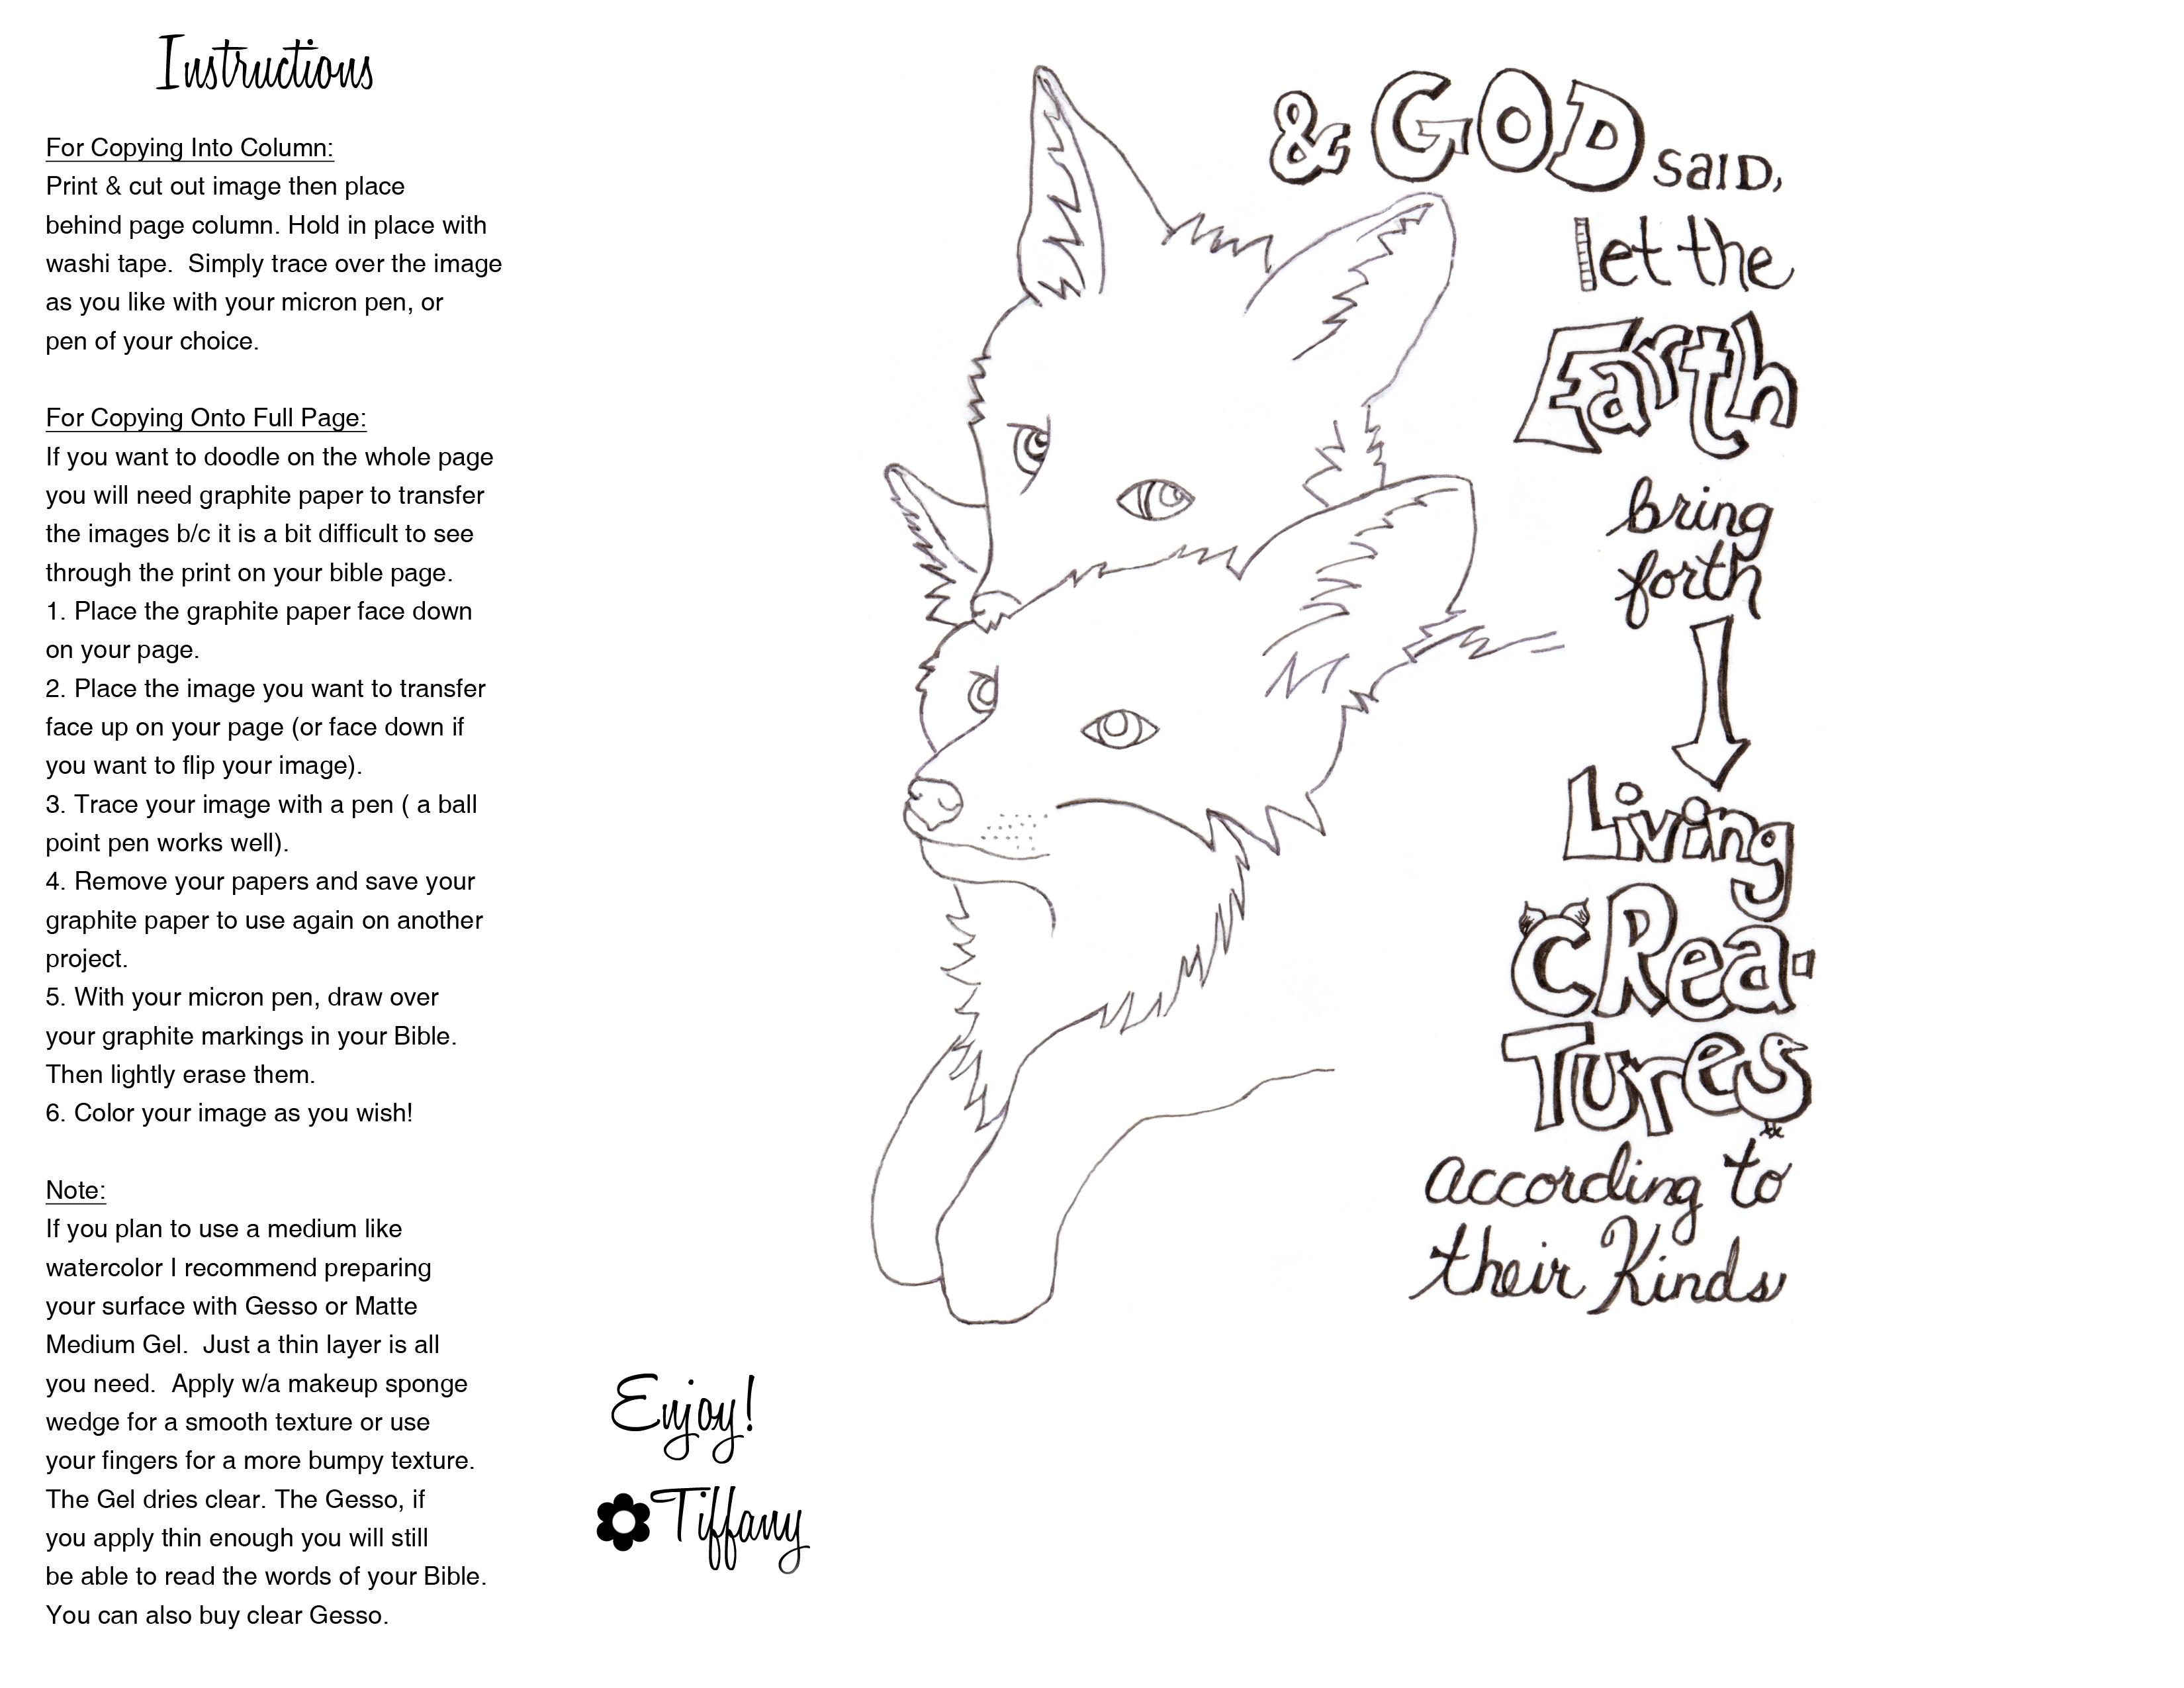 Instructions
For Copying Into Column:
Print & cut out image then place
behind page column. Hold in place with
washi tape.  Simply trace over the image
as you like with your micron pen, or
pen of your choice.
For Copying Onto Full Page:
If you want to doodle on the whole page
you will need graphite paper to transfer
the images b/c it is a bit difficult to see
through the print on your bible page.
1. Place the graphite paper face down
on your page.
2. Place the image you want to transfer
face up on your page (or face down if
you want to flip your image).
3. Trace your image with a pen ( a ball
point pen works well).
4. Remove your papers and save your
graphite paper to use again on another
project.
5. With your micron pen, draw over
your graphite markings in your Bible.
Then lightly erase them.
6. Color your image as you wish!
Note:
If you plan to use a medium like
watercolor I recommend preparing
your surface with Gesso or Matte
Medium Gel.  Just a thin layer is all
you need.  Apply w/a makeup sponge
wedge for a smooth texture or use
your fingers for a more bumpy texture.
The Gel dries clear. The Gesso, if
you apply thin enough you will still
be able to read the words of your Bible.
You can also buy clear Gesso.
Enjoy!
Tiffany
& GOD said,
let the
Earth
bring
forth
Living
CRea-
Tures
according to
their Kinds